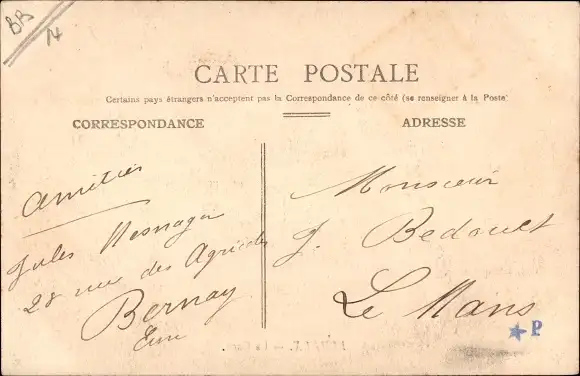 BB
14
CARTE POSTALE
Certains pays étrangers n'acceptent pas la Correspondance de ce côté (se renseigner à la Poste)
CORRESPONDANCE
ADRESSE
Amitiés
Jules Mesnager
28 rue des
Bernay
Eure
Monsieur
J. Bedouet
Le Mans
P